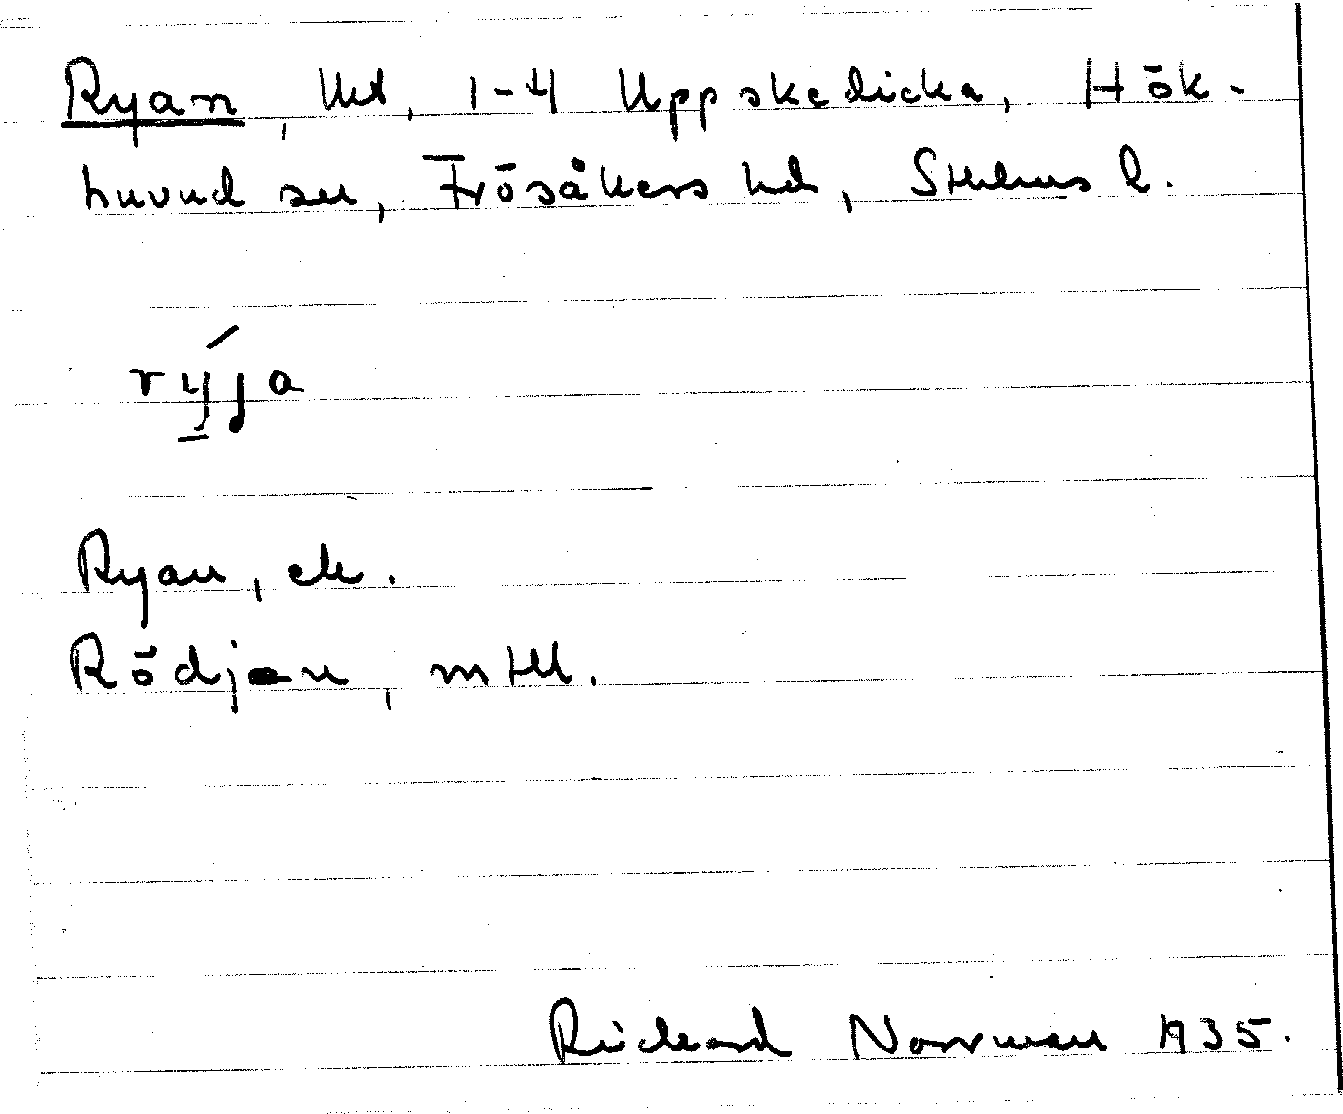 Ryan, lht, 1-4 Uppskedicka, Hök-
huvud sn, Frösåkers hd, Sthlms l.
rýja
Ryan, ek.
Rödjan, mtll.
Rickard Norrman 1935.